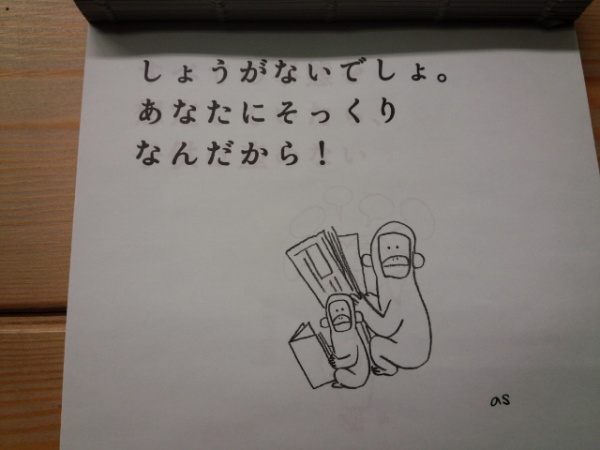 しょうがないでしょ。
あなたにそっくり
なんだから！
as